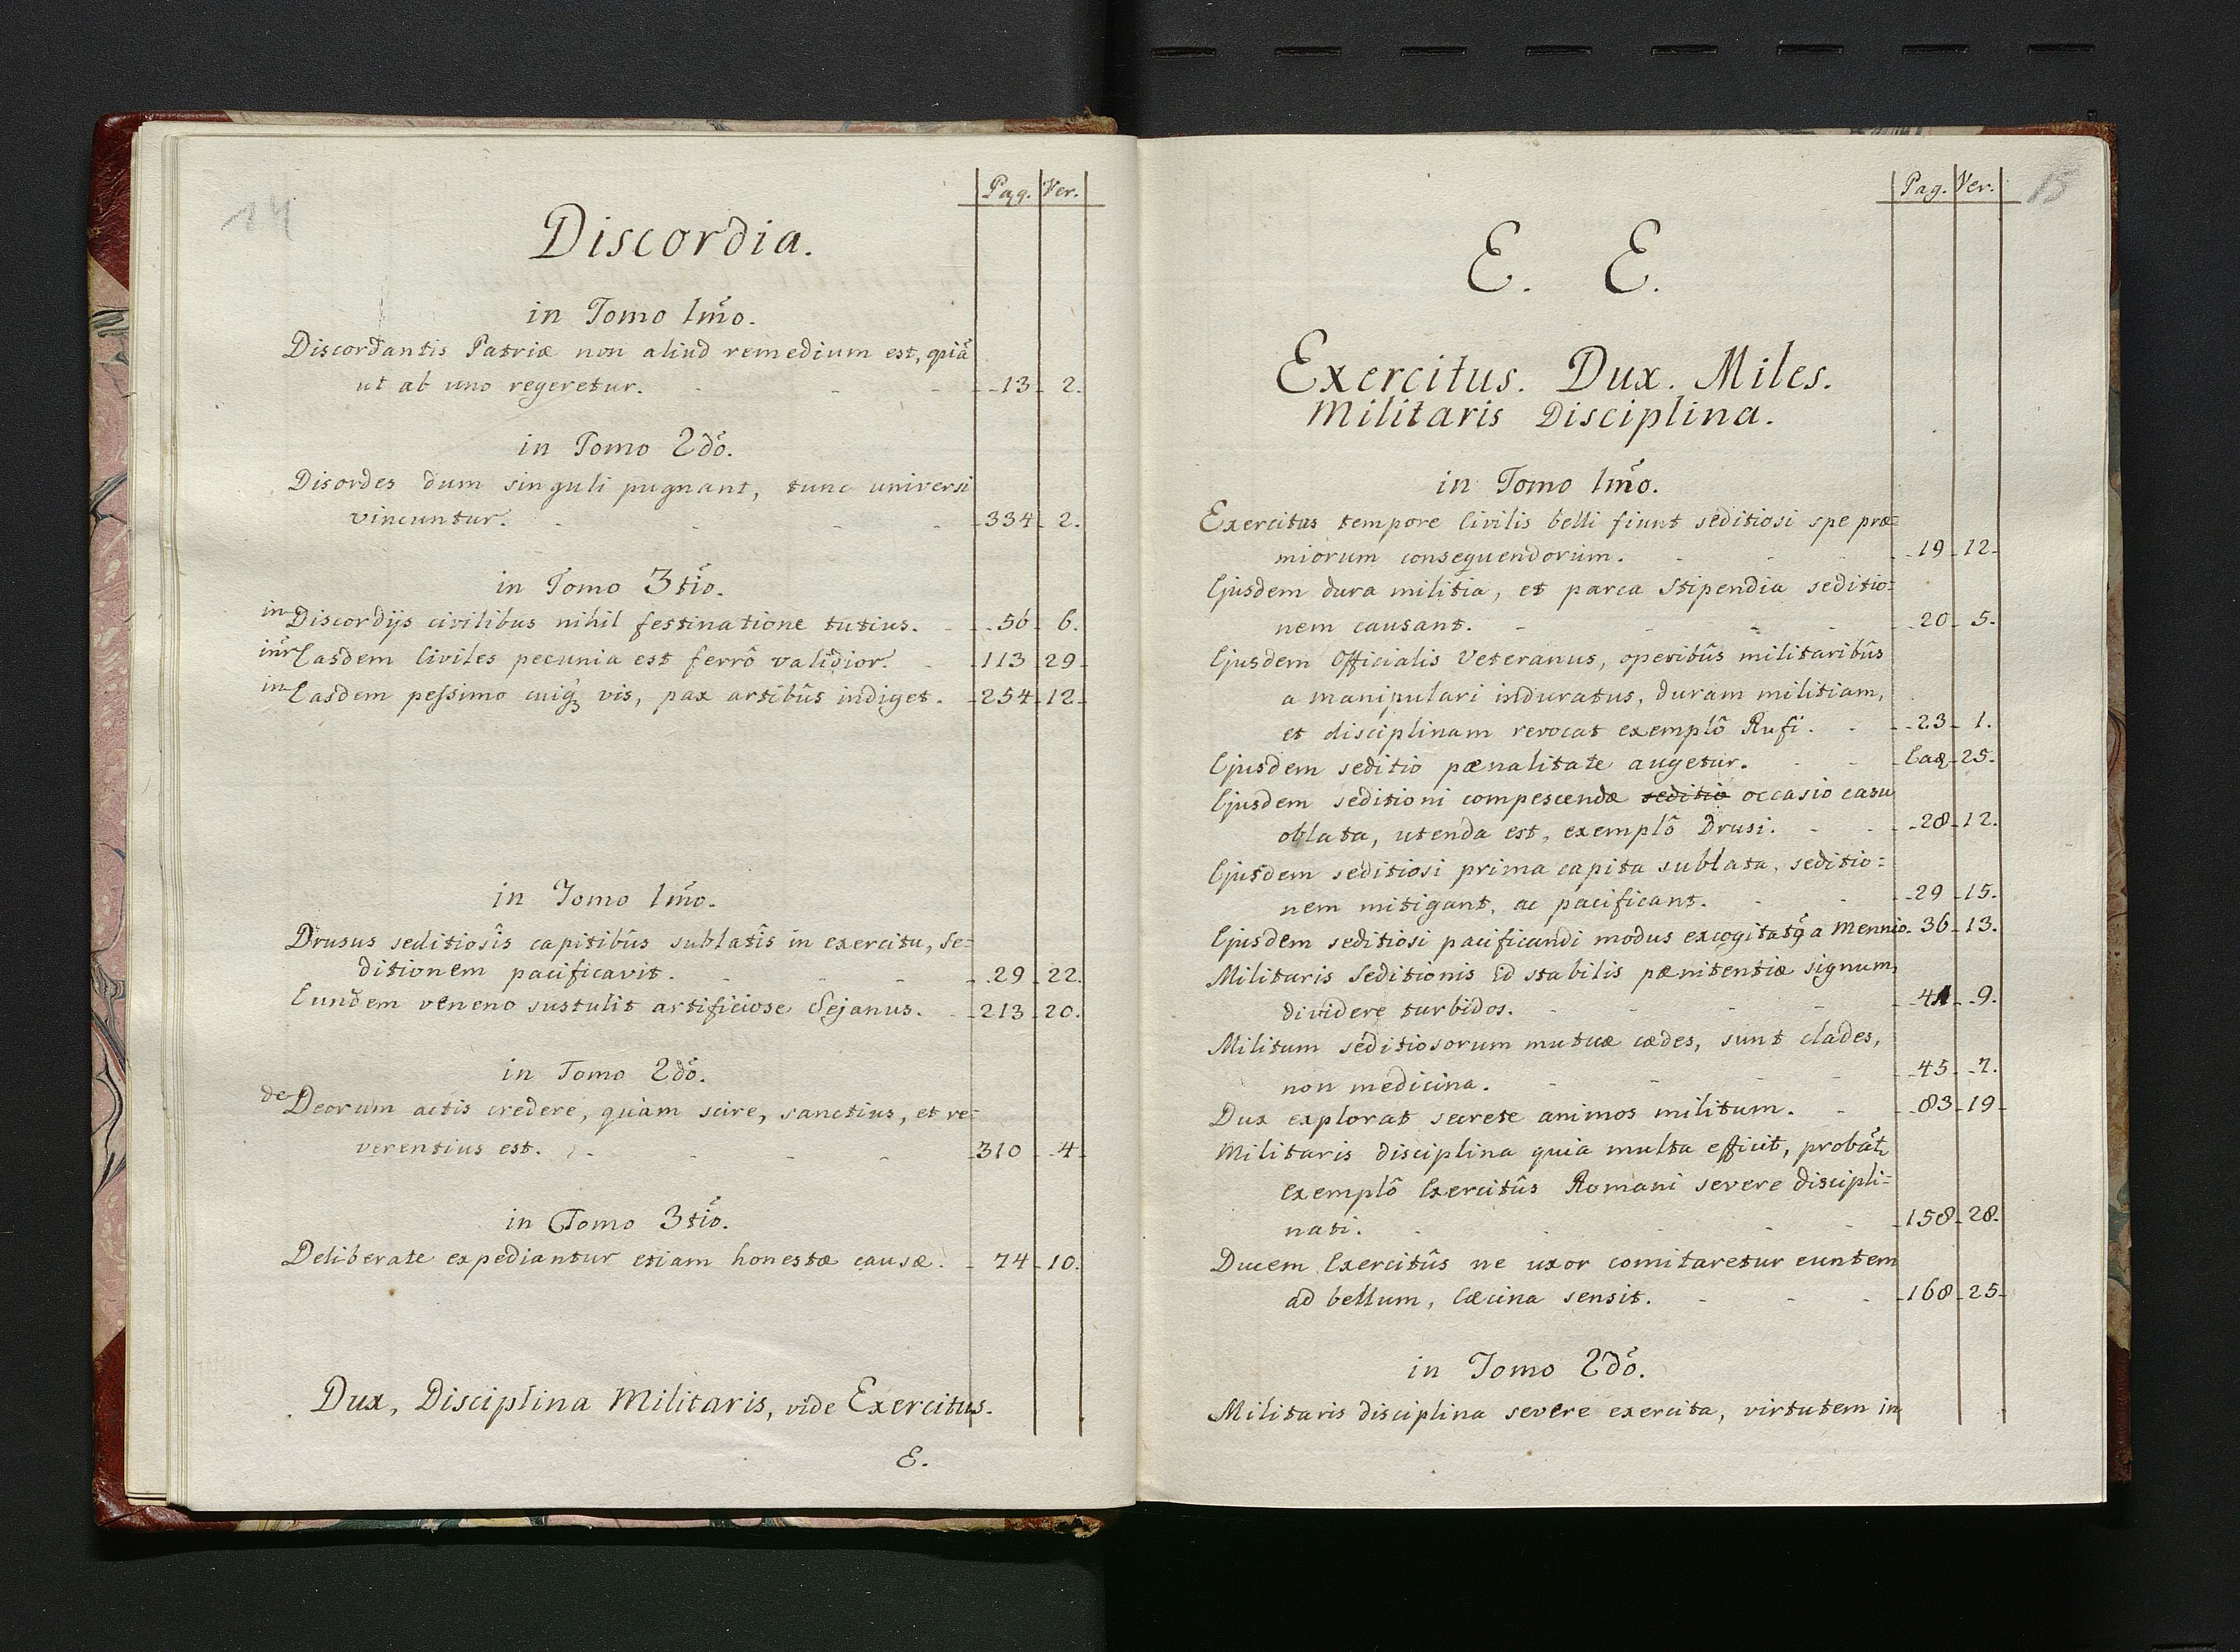 14
Pag. Ver.
Discordia.
in Tomo 1mo.
Discordantis Patriæ non aliud remedium est, quiã
ut ab uno regeretur. - - - 13 - 2.
in Tomo 2do.
Disordes dum singuli pugnant, tunc universi
vincuntur. - - - - 334 - 2.
in Tomo 3tio.
in Discordijs civilibus nihil festinatione tutius. - 56 - 6.
inr Easdem Civiles pecunia est ferrô validior. - 113 - 29
in Easdem pessimo cuiq3 vis, pax artibûs indiget. - 254 - 12
in Tomo 1mo.
Drusus seditiosîs capitibûs sublatîs in exercitu, se=
ditionem pacificavit. - - - 29 - 22.
Eundem veneno sustulit artificiose Sejanus. - 213 - 20.
in Tomo 2do.
de Deorum actis credere, quàm scire, sanctius, et re=
verentius est. - - - - 310 - 4
in Tomo 3tio.
Deliberate expediantur etiam honestæ causæ. - 74 - 10.
Dux, Disciplina Militaris, vide Exercitus.
E.
15
Pag. Ver.
E. E.
Exercitus. Dux. Miles.
Militaris Disciplina.
in Tomo 1mo.
Exercitus tempore Civilis belli fiunt seditiosi spe præ=
miorum consequendorum. - - - 19 - 12
Ejusdem dura militia, et parca Stipendia seditio=
nem causant. - - - - 20 - 5.
Ejusdem Officialis Veteranus, operibûs militaribûs
a manipulari induratus, duram militiam,
et disciplinam revocat exemplô Rufi. - - 23 - 1.
Ejusdem seditio pænalitate augetur. - - Eaq - 25.
Ejusdem seditioni compescendæ seditio occasio casu
oblata, utenda est, exemplô Drusi. - - 28 - 12.
Ejusdem seditiosi prima capita sublata, seditio=
nem mitigant, ac pacificant. - - - 29 - 15.
Ejusdem seditiosi pacificandi modus excogitatq a Mennio - 36 - 13.
Militaris Seditionis Ed stabilis pænitentiæ signum,
dividere turbidos. - - - - 41 - 9.
Militum seditiosorum mutuæ cædes, sunt clades,
non medicina. - - - - 45 - 7.
Dux explorat secrete animos militum. - - 83 - 19
Militaris disciplina quia multa efficit, probat
exemplô Exercitûs Romani severe discipli=
nati. - - - - 158 - 28.
Ducem Exercitûs ne uxor comitaretur euntem
ad bellum, Cæcina sensit. - - - 168 - 25
in Tomo 2do.
Militaris disciplina severe exercita, virtutem in